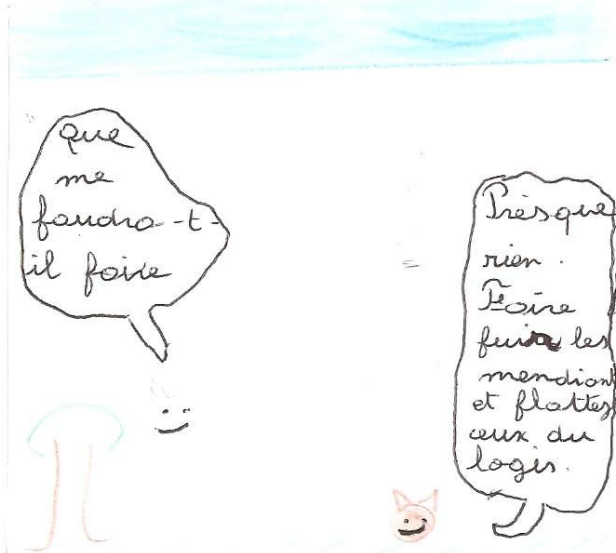 Que
me
faudra-t-
il faire
Prèsque
rien.
Faire
fuir les
mendiant
et flattez
ceux du
logis.